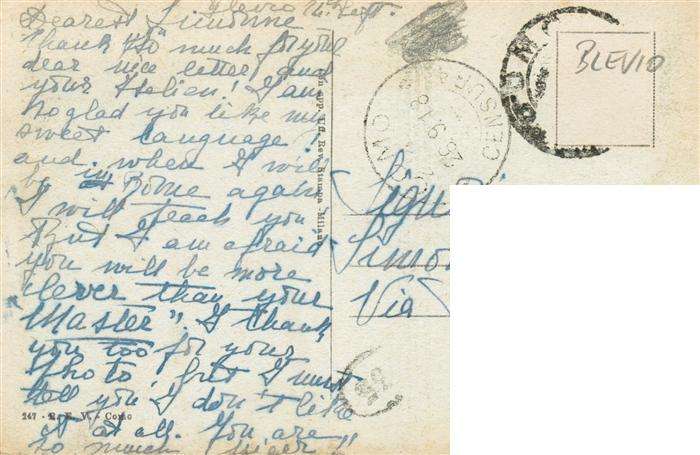 Blevio 24 Sept.
Dearest Simonne
Thank "so" much for your
dear nice letter, and
your Italien! I am
so glad you like my
sweet language!
and when I will
be in Rome again
I will teach you
But I am afraid
you will be more
clever than your
Master". I thank
you too for your
Photo, but I must
tell you I don't like
it at all. You are
so much nicer!!
247 - R. E. V. - Como
Rev. Stampa - Milano
CENSURA
26.9.18
COMO
BLEVIO
Simo
Via